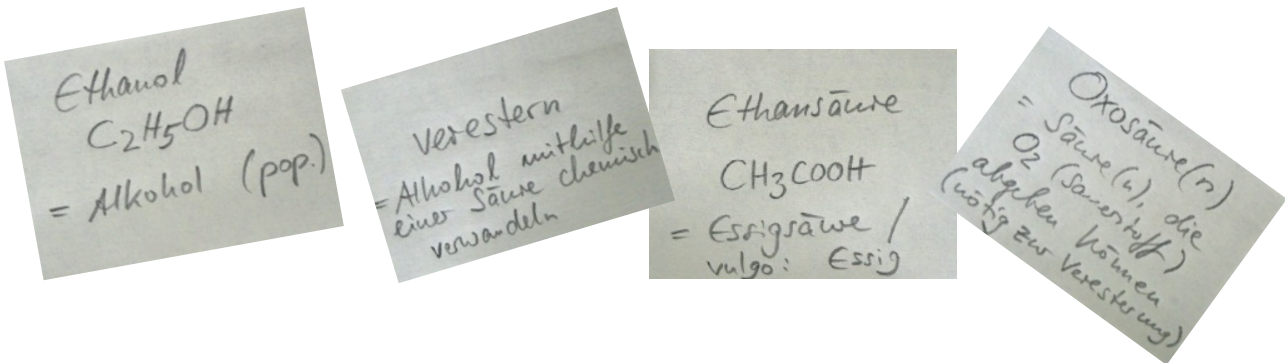 Ethanol
C2H5OH
= Alkohol (pop.)
verestern
= Alkohol mithilfe
einer Säure chemisch
verwandeln
Ethansäure
CH3COOH
= Essigsäure /
vulgo: Essig
Oxosäure(n)
= Säure(n), die
O2 (Sauerstoff)
abgeben können
(nötig zur Veresterung)